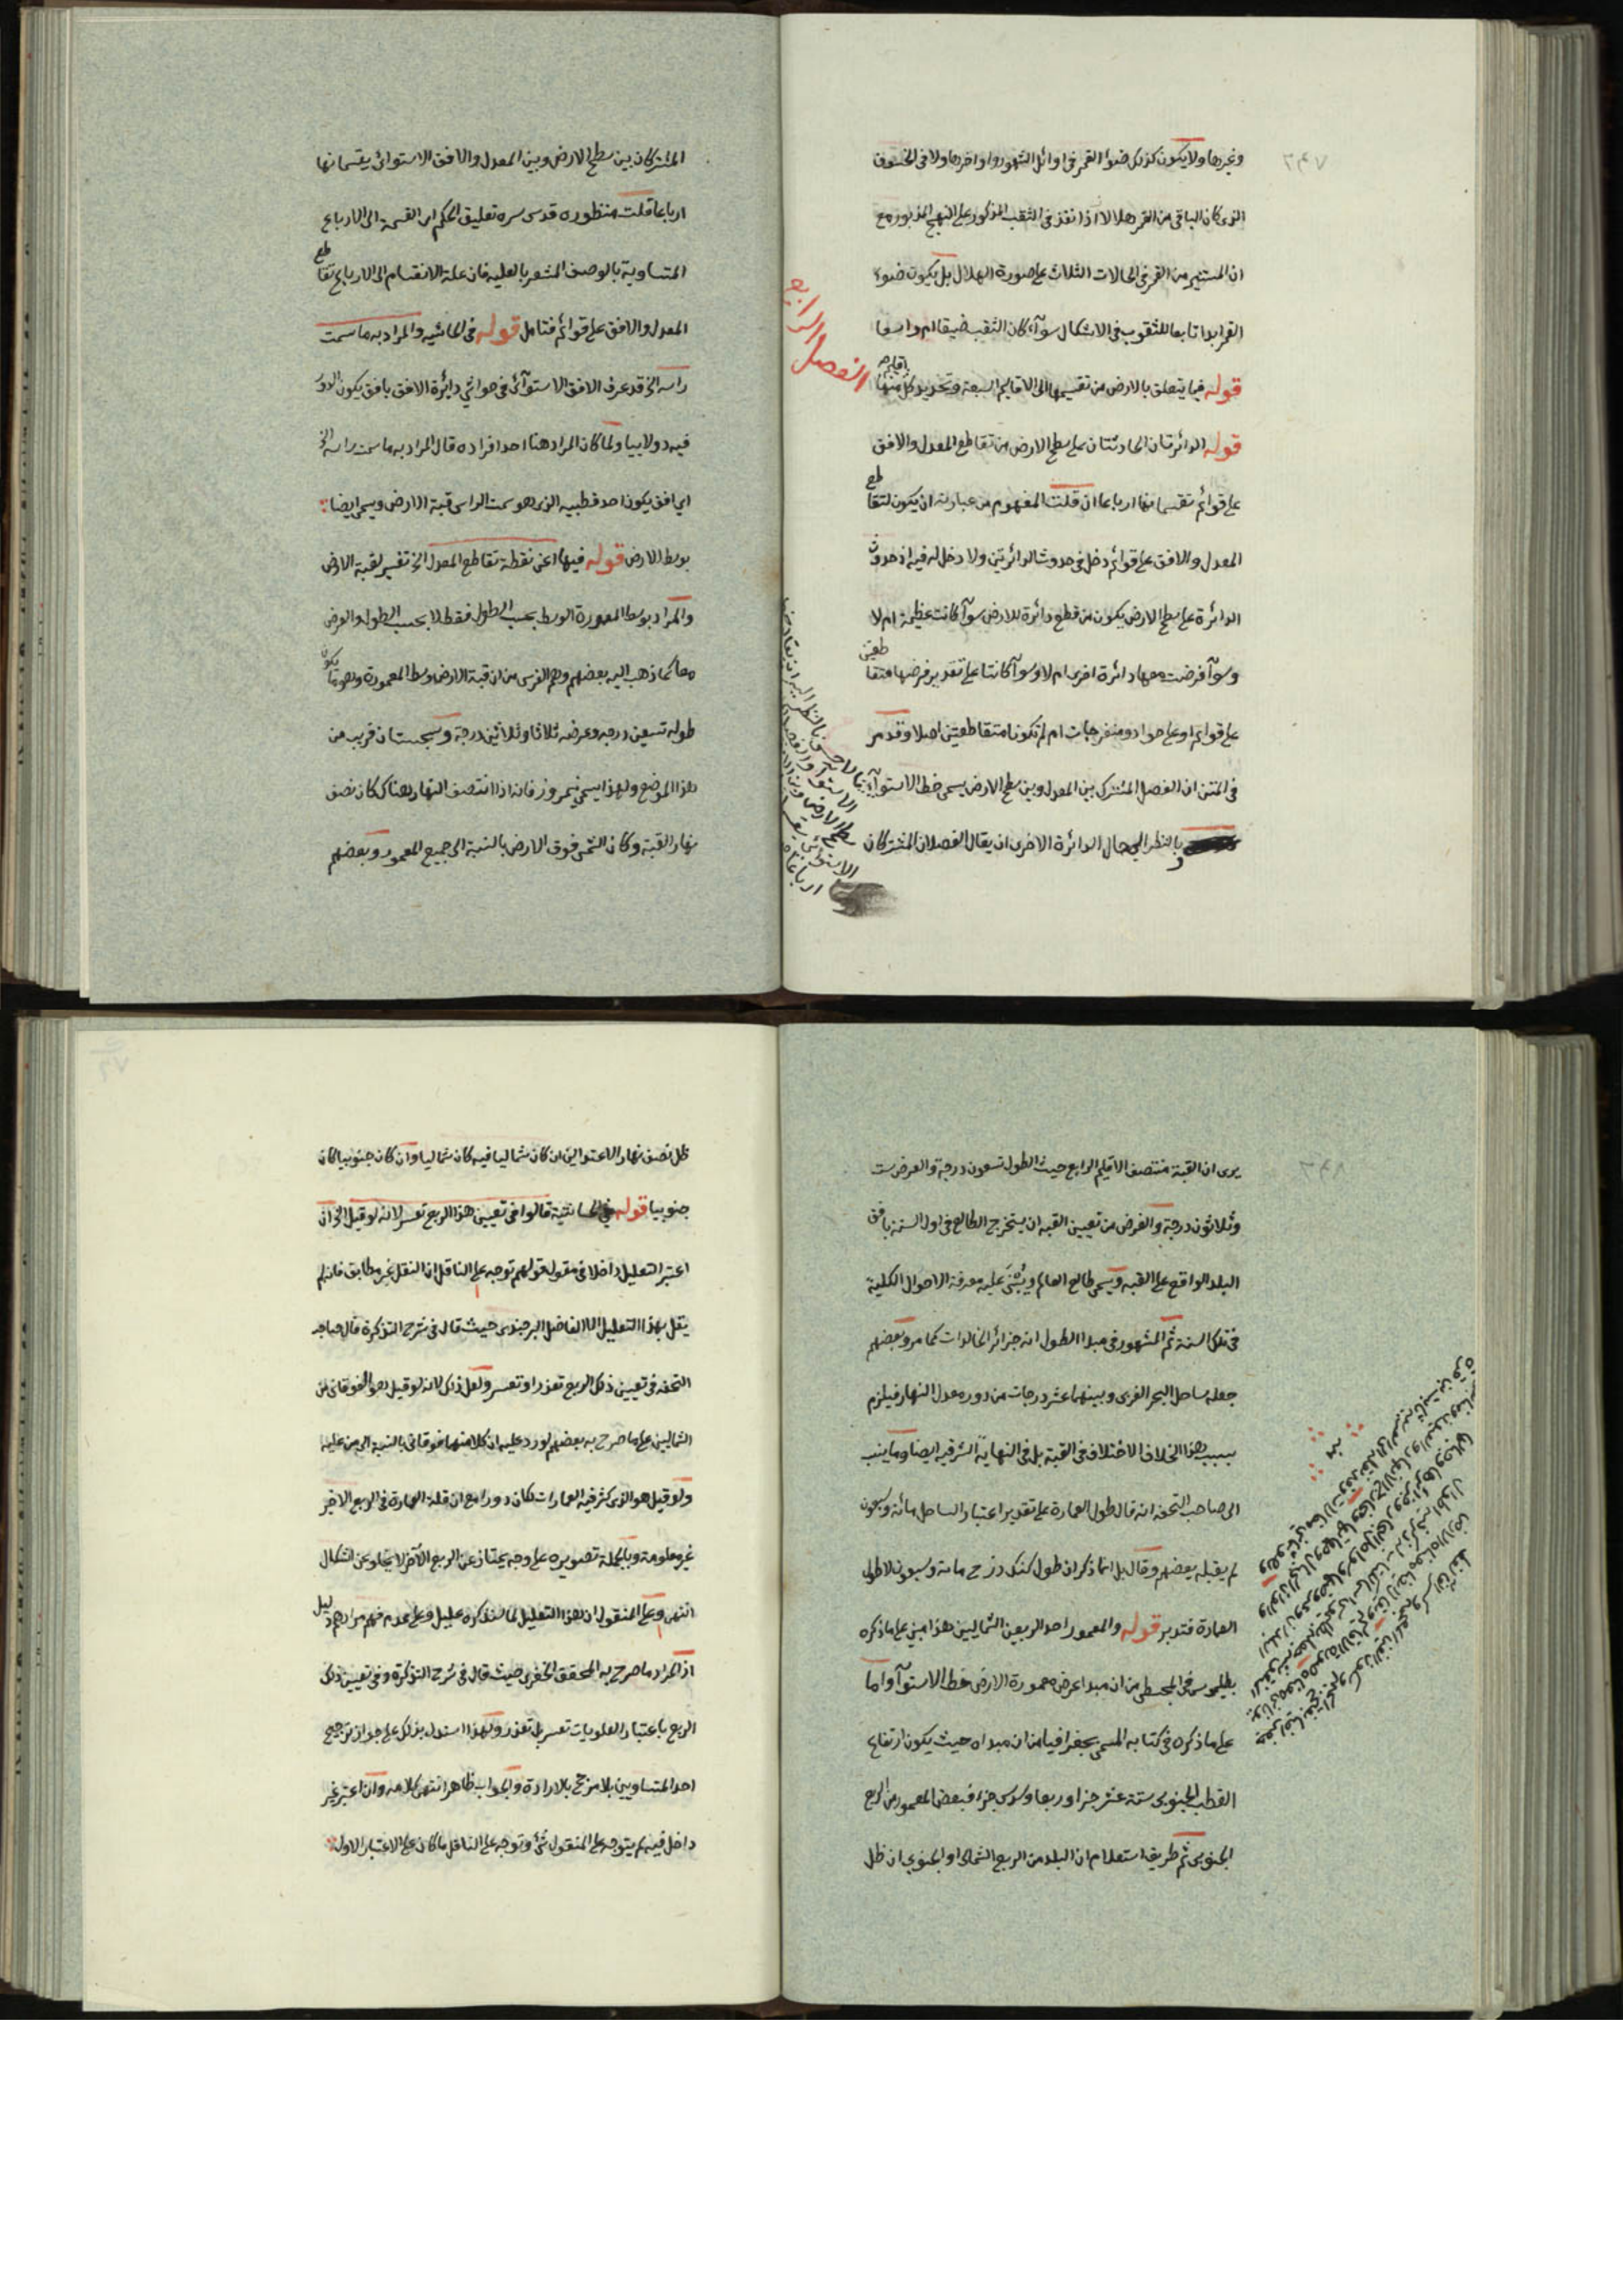 وغيرها ولا يكون كذلك ضوء القمر في اوائل الشهور واواخرها ولا في الخسوف
الذي كان الباقي من القمر هلالا اذا نفذ في الثقب المذكور على النهج المذبور مع
ان المستنير من القمر في الحالات الثلاث على صورة الهلال بل يكون ضوء
القمر ابدا تابعا للثقوب في الاشكال سوآء كان الثقب ضيقا ام واسعا
الفصل الرابع
قوله فيما يتعلق بالارض من تقسيمها الى الاقاليم السبعة وتحديد كل منها
قوله الدائرتان الحادثتان على سطح الارض من تقاطع المعدل والافق
على قوائم تقسمانها ارباعا ان قلت المفهوم من عبارته ان يكون لتقاطع
المعدل والافق على قوائم دخل في حدوث الدائرتين ولا دخل له فيه اذ حدوث
الدائرة على سطح الارض يكون من قطع دائرة للارض سوآء كانت عظيمة ام لا
وسوآء فرضت معها دائرة اخرى ام لا وسوآء كانتا على تقدير فرضها متقاطعتين
على قوائم او على حواد ومنفرجات ام لم تكونا متقاطعتين اصلا وقد مر
في المتن ان الفصل المشترك بين المعدل وبين سطح الارض يسمى خط الاستوآء
وبالنظر الى حال الدائرة الاخرى ان يقال الفصلان المشتركان
المشتركان بين سطح الارض وبين المعدل والافق الاستوائي يقسمانها
ارباعا قلت منظوره قدس سره تعليق الحكم اى القسمة الى الارباع
المتساوية بالوصف المشعر بالعلية فان علة الانقسام الى الارباع تقاطع
المعدل والافق على قوائم فتامل قوله في الحاشيه والمراد به ما سمت
راسه الخ قد عرف الافق الاستوآئى في حواشي دائرة الافق بافق يكون الدور
فيه دولابيا ولما كان المراد هنا احد افراده قال المراد به ما سمت راسه الخ
اي افق يكون احد قطبيه الذى هو سمت الراس قبة الارض ويسمى ايضا
بوسط الارض قوله فيها اعنى نقطة تقاطع المعدل الخ تفسير لقبة الارض
والمراد بوسط المعمورة الوسط بحسب الطول فقط لا بحسب الطول والعرض
معا كما ذهب اليه بعضهم وهم الفرس من ان قبة الارض وسط المعمورة وهو ما يكون
طوله تسعين درجه وعرضه ثلاثا وثلاثين درجة وسجستان قريب من
هذا الموضع ولهذا يسمى نيمروز فانه اذا انتصف النهار هناك كان نصف
نهار القبة وكان الشمس فوق الارض بالنسبة الى جميع المعمور وبعضهم
يرى ان القبة منتصف الاقليم الرابع حيث الطول تسعون درجة والعرض ست
وثلاثون درجة والغرض من تعيين القبه ان يستخرج الطالع في اول السنة بافق
البلد الواقع على القبه ويسمى طالع العالم ويبتنى عليه معرفة الاحوال الكلية
في تلك السنة ثم المشهور في مبدا الطول انه جزائر الخالدات كما مر وبعضهم
جعله ساحل البحر الغربى وبينهما عشر درجات من دور معدل النهار فيلزم
بسبب هذا الخلاف الاختلاف في القبة بل في النهاية الشرقيه ايضا وما ينسب
الى صاحب التحفه انه قال طول العمارة على تقدير اعتبار الساحل مائة وسبعون
لم يقبله بعضهم وقال بل انما ذكر ان طول كنك دز ح مائة وسبعون لا طول
العمارة فتدبر قوله والمعمور احد الربعين الشماليين هذا مبنى على ما ذكره
بطلميوس في المجسطى من ان مبدا عرض معمورة الارض خط الاستوآء واما
على ما ذكره في كتابه المسمى بجغرافيا من ان مبداه حيث يكون ارتفاع
القطب الجنوبى ستة عشر جزا وربعا وسدس جزء فبعض المعمور من الربع
الجنوبى ثم طريقه استعلام ان البلد من الربع الشمالى او الجنوبى ان ظل
ظل نصف نهار الاعتدالين ان كان شماليا فيه كان شماليا وان كان جنوبيا كان
جنوبيا قوله في الحاشية قالوا في تعيين هذا الربع تعسر لانه لو قيل الخ ان
اعتبر التعليل داخلا في مقول قولهم توجه على الناقل ان النقل غير مطابق فانه لم
يقل بهذا التعليل الا الفاضل البرجندى حيث قال في شرح التذكرة قال صاحب
التحفه في تعيين ذلك الربع تعذر او تعسر ولعل ذلك لانه لو قيل هو الفوقانى من
الشماليين على ما صرح به بعضهم لورد عليه ان كلا منهما فوقانى بالنسبة الى من عليه
ولو قيل هو الذى كثر فيه العمارات لكان دورا مع ان قلة العمارة في الربع الاخر
غير معلومة وبالجملة تصويره على وجه يمتاز عن الربع الآخر لا يخلو عن اشكال
انتهى وعلى المنقول ان هذا التعليل لما سنذكره عليل وعلى عدم فهم مرادهم دليل
اذ المراد ما صرح به المحقق الخفرى حيث قال في شرح التذكرة وفي تعيين ذلك
الربع باعتبار العلويات تعسر بل تعذر ولهذا استدل بذلك على جواز ترجيح
احد المتساويين بلا مرجح بالارادة والجواب ظاهر انتهى كلامه وان اعتبر غير
داخل فيه لم يتوجه على المنقول شئ وتوجه على الناقل ما كان على الاعتبار الاول